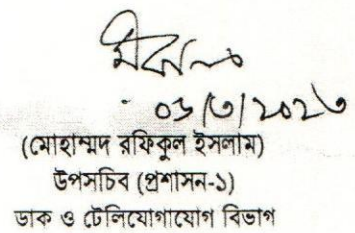 (মোহাম্মদ রফিকুল ইসলাম)
উপসচিব (প্রশাসন-১)
ডাক ও টেলিযোগাযোগ বিভাগ